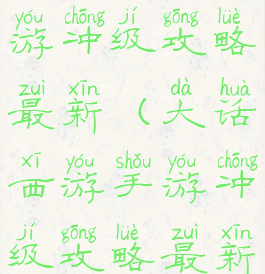 yóu chōng jí gōng lüè
游冲级攻略
zuì xīn dà huà
最新（大话
xī yóu shǒu yóu chōng
西游手游冲
jí gōng lüè zuì xīn
级攻略最新